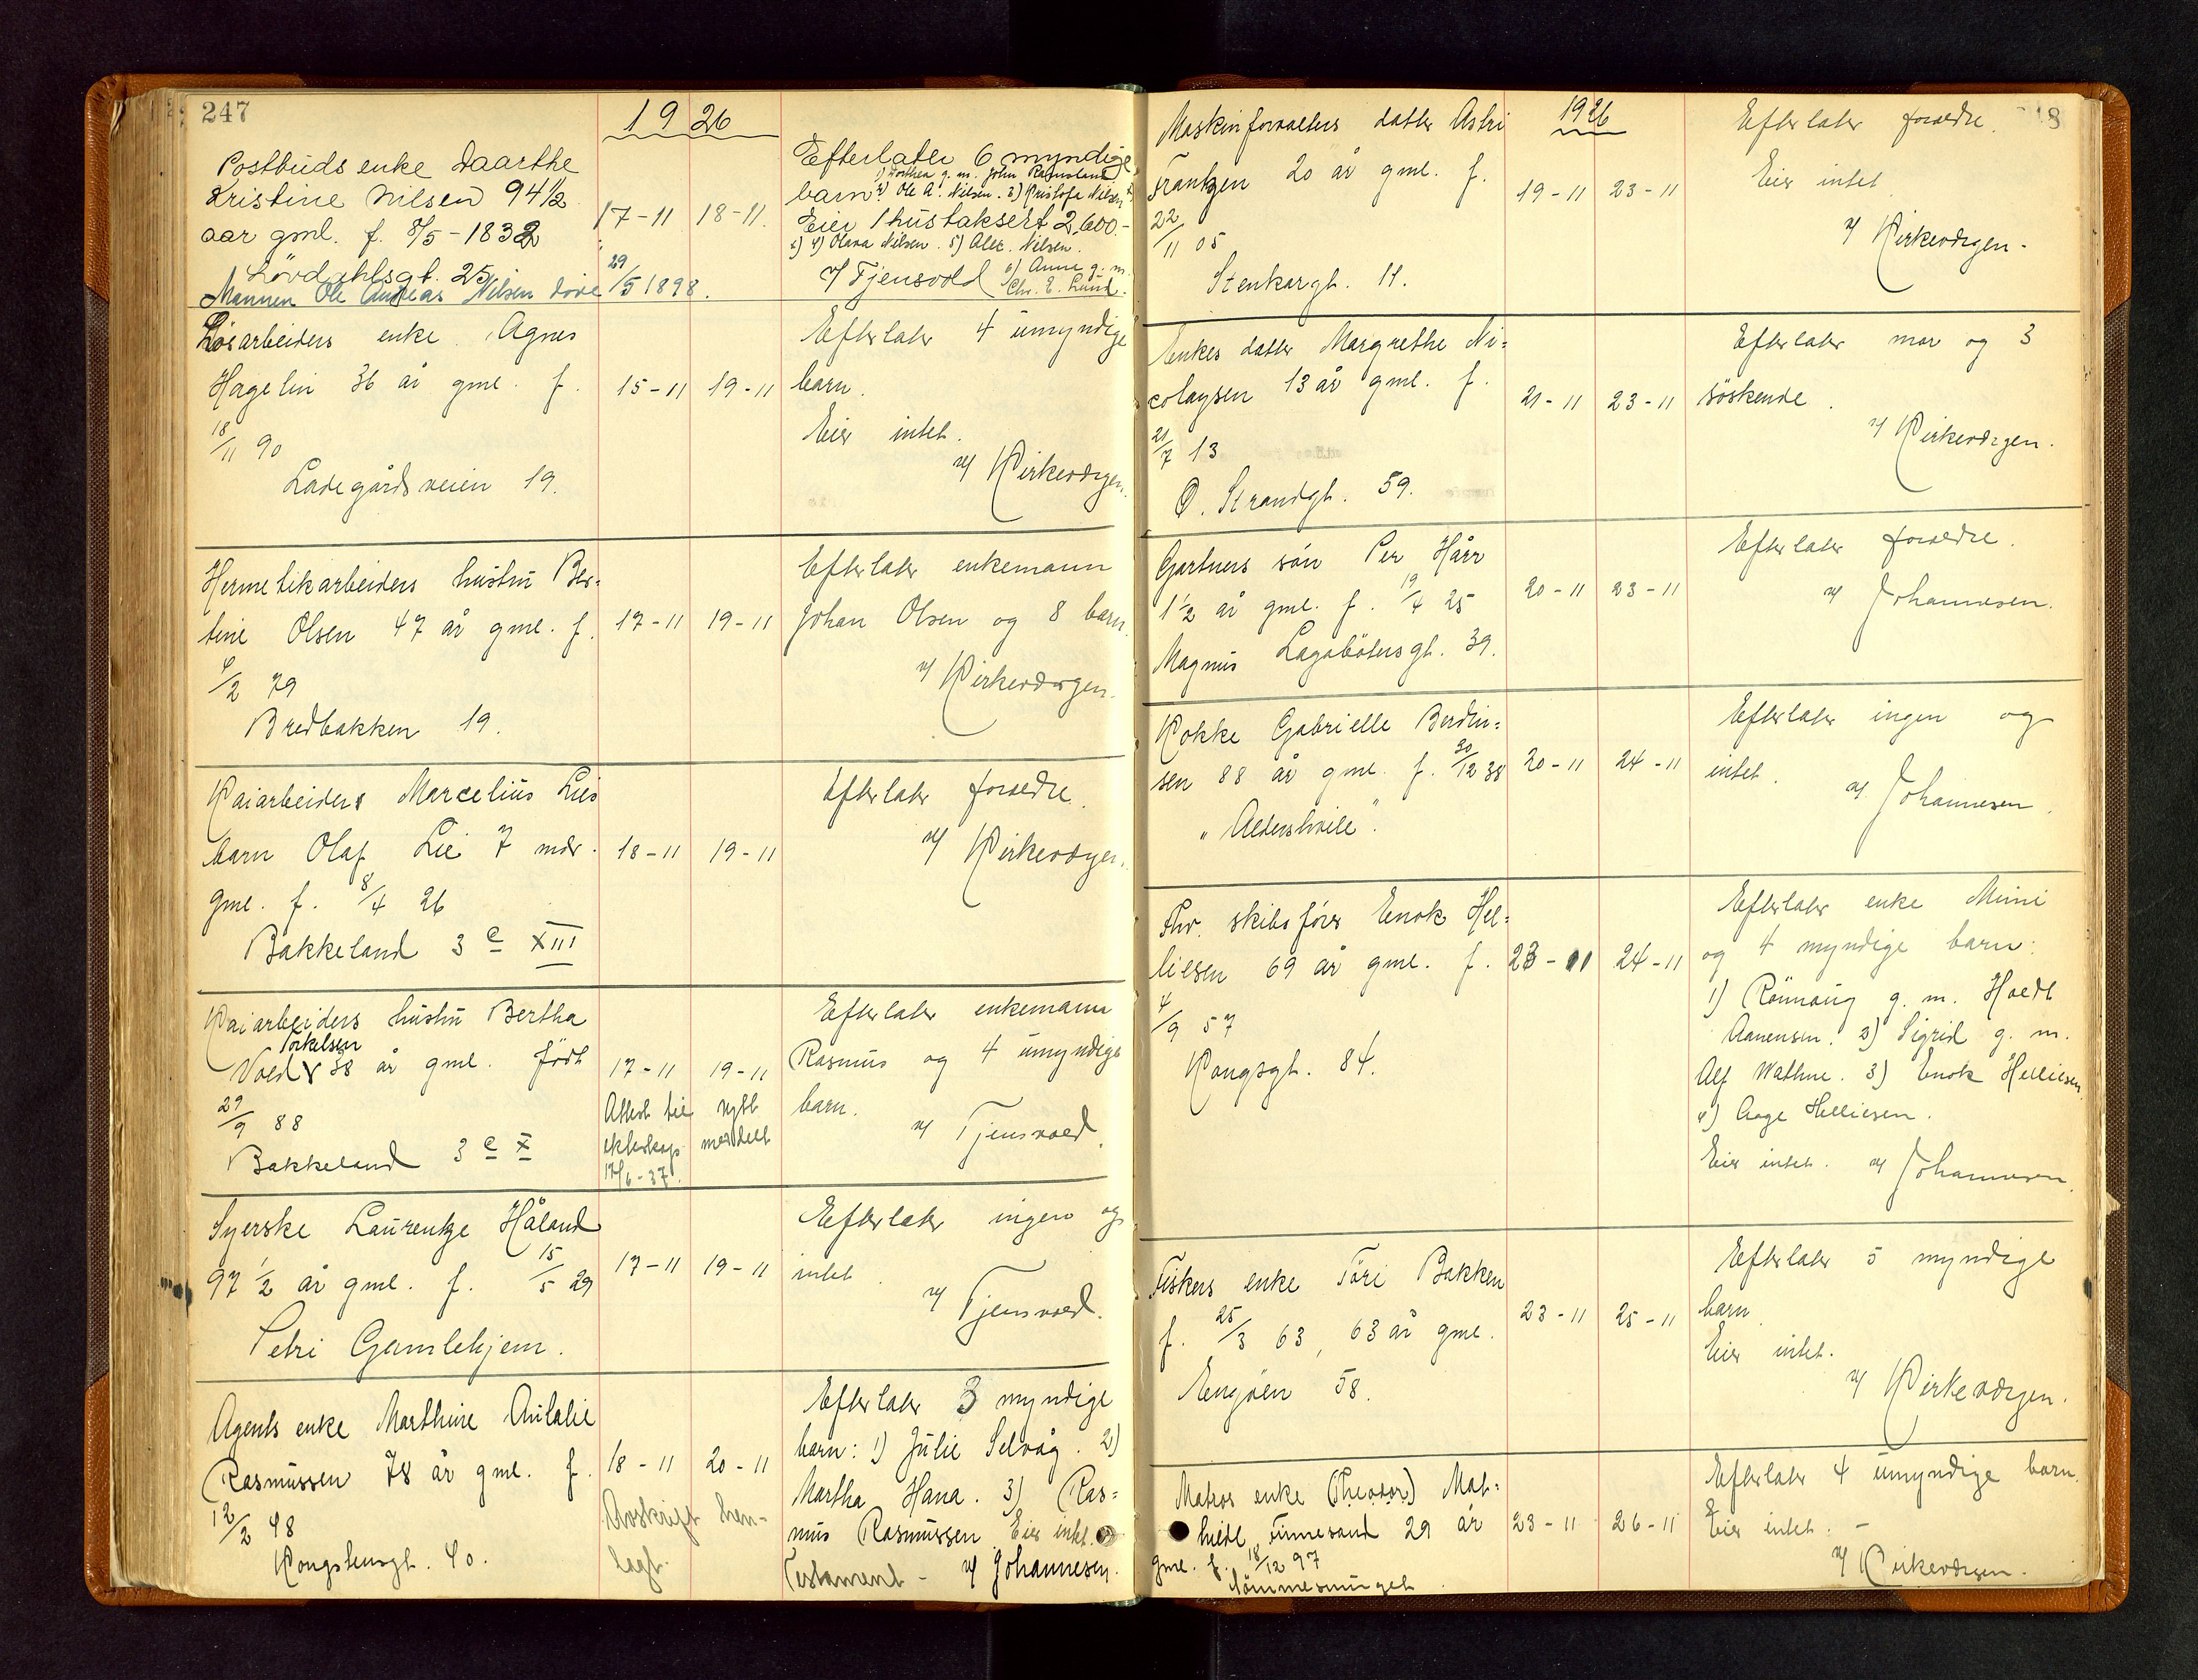 247
1926
Postbuds enke Daarthe
Kristine Nilsen 94½
aar gml. f. 8/5-1832
Lövdahlsgt. 25
Mannen Ole Andreas Nilsen döde 29/5 1898.
17-11 18-11.
Efterlater 6 myndige
1) Dorthea g. m. John Ramsland
barn 2) Ole A. Nilsen. 3) Kristofe Nilsen
Eier 1 hus taksert 2,600.-
4) Olava Nilsen. 5) Alex. Nilsen.
6) Anne g. m.
v/ Tjensvold Chr. E. Lund.
Lösarbeiders enke Agnes
Hagelin 36 år gml. f.
18/11 90
Ladegårdsveien 19.
15-11 19-11
Efterlater 4 umyndige
barn.
Eier intet.
v/ Kirkevergen.
Hermetikarbeiders hustru Ber-
tine Olsen 47 år gml. f.
9/2 79
Bredbakken 19.
17-11 19-11
Efterlater enkemann
Johan Olsen og 8 barn.
v/ Kirkevergen.
Kaiarbeiders Marcelius Lies
barn Olaf Lie 7 mdr.
gml. f. 8/4 26
Bakkeland 3 e XIII
18-11 19-11
Efterlater foreldre.
v/ Kirkevergen.
Kaiarbeiders hustru Bertha
Torkelsen
Vold 38 år gml. født
29/9 88
Bakkeland 3 e X
17-11 19-11
Attest til nytt
ekteskap meddelt
17/6-37.
Efterlater enkemann
Rasmus og 4 umyndige
barn.
v/ Tjensvold.
Syerske Laurentze Håland
97½ år gml. f. 15/5 29
Petri Gamlehjem.
17-11 19-11
Efterlater ingen og
intet.
v/ Tjensvold.
Agents enke Marthine Aulalie
Rasmussen 78 år gml. f.
12/2 48
Kongshusgt. 40.
18-11 20-11
Avskrift hen-
lagt.
Efterlater 3 myndige
barn: 1) Julie Selvåg. 2)
Martha Hana. 3) Ras-
mus Rasmussen. Eier intet.
Testament - v/ Johannesen.
8
1926
Maskinforvalters datter Astri
Frantzen 20 år gml. f.
22/11 05
Stenkargt. 11.
19-11 23-11
Efterlater foreldre.
Eier intet.
v/ Kirkevergen.
Enkes datter Margrethe Ni-
colaysen 13 år gml. f.
21/7 13
Ø. Strandgt. 59.
21-11 23-11
Efterlater mor og 3
söskende.
v/ Kirkevergen.
Gartners sön Per Hårr
1½ år gml. f. 19/4 25
Magnus Lagabötersgt. 39.
20-11 23-11
Efterlater foreldre.
v/ Johannesen.
Kokke Gabrielle Berdin-
sen 88 år gml. f. 30/12 38
"Aldershvile".
20-11 24-11
Efterlater ingen og
intet.
v/ Johannesen.
Fhv. skibsförer Enok Hel-
liesen 69 år gml. f.
4/9 57
Kongsgt. 84.
23-11 24-11
Efterlater enke Mimi
og 4 myndige barn:
1) Rönnaug g. m. Hoedt
Aanensen. 2) Sigrid g. m.
Alf Wathne. 3) Enok Helliesen
4) Aage Helliesen.
Eier intet. v/ Johannesen.
Fiskers enke Töri Bakken
f. 25/3 63, 63 år gml.
Engöen 58.
23-11 25-11
Efterlater 5 myndige
barn.
Eier intet.
v/ Kirkevergen.
Matros enke (Theodor) Mat-
hilde Finnesand 29 år
gml. f. 18/12 97
23-11 26-11
Efterlater 4 umyndige barn.
Eier intet. -
v/ Kirkevergen.